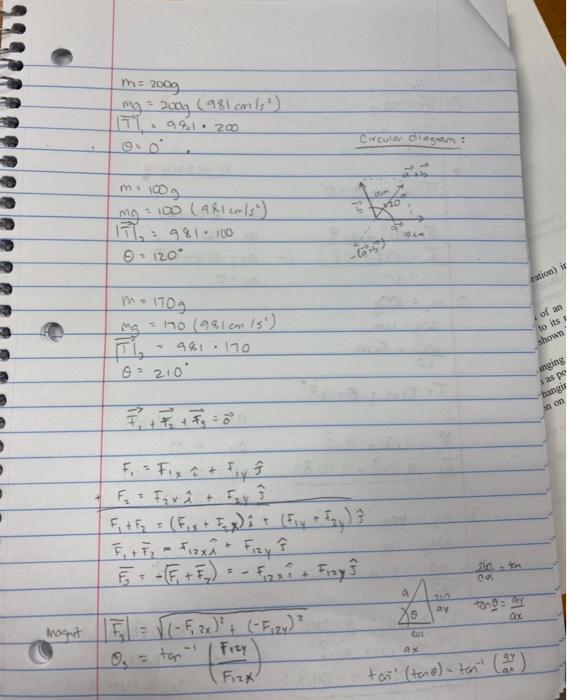 m = 200g
mg = 200g (981 cm/s²)
|T⃗|₁ = 981 • 200
θ = 0°
Circular diagram:
a⃗+b⃗
b⃗
10cm
120
a⃗
10cm
-(a⃗+b⃗)
m = 100g
mg = 100 (981 cm/s²)
|T⃗|₂ = 981 • 100
θ = 120°
m = 170g
mg = 170 (981 cm/s²)
|T⃗|₃ = 981 • 170
θ = 210°
F⃗₁ + F⃗₂ + F⃗₃ = 0⃗
F₁ = F₁ₓ î + F₁y ĵ
+ F₂ = F₂ₓ î + F₂y ĵ
F₁+F₂ = (F₁ₓ + F₂ₓ) î + (F₁y + F₂y) ĵ
F̅₁ + F̅₂ = F₁₂ₓ î + F₁₂y ĵ
F̅₃ = -(F̅₁ + F̅₂) = -F₁₂ₓ î + F₁₂y ĵ
magnit |F̅₃| = √((-F₁₂ₓ)² + (-F₁₂y)²
θ₃ = tan⁻¹ (F₁₂y / F₁₂ₓ)
a
θ
sin
ay
cos
ax
sin/cos = tan
tanθ = ay/ax
tan⁻¹ (tanθ) = tan⁻¹ (ay/ax)
ration) in
of an
to its
shown
nging
as po
hangin
on on